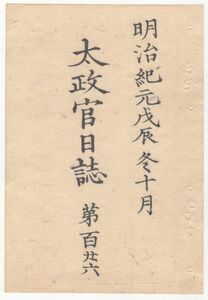 明治紀元戊辰冬十月
太政官日誌 第百廿六